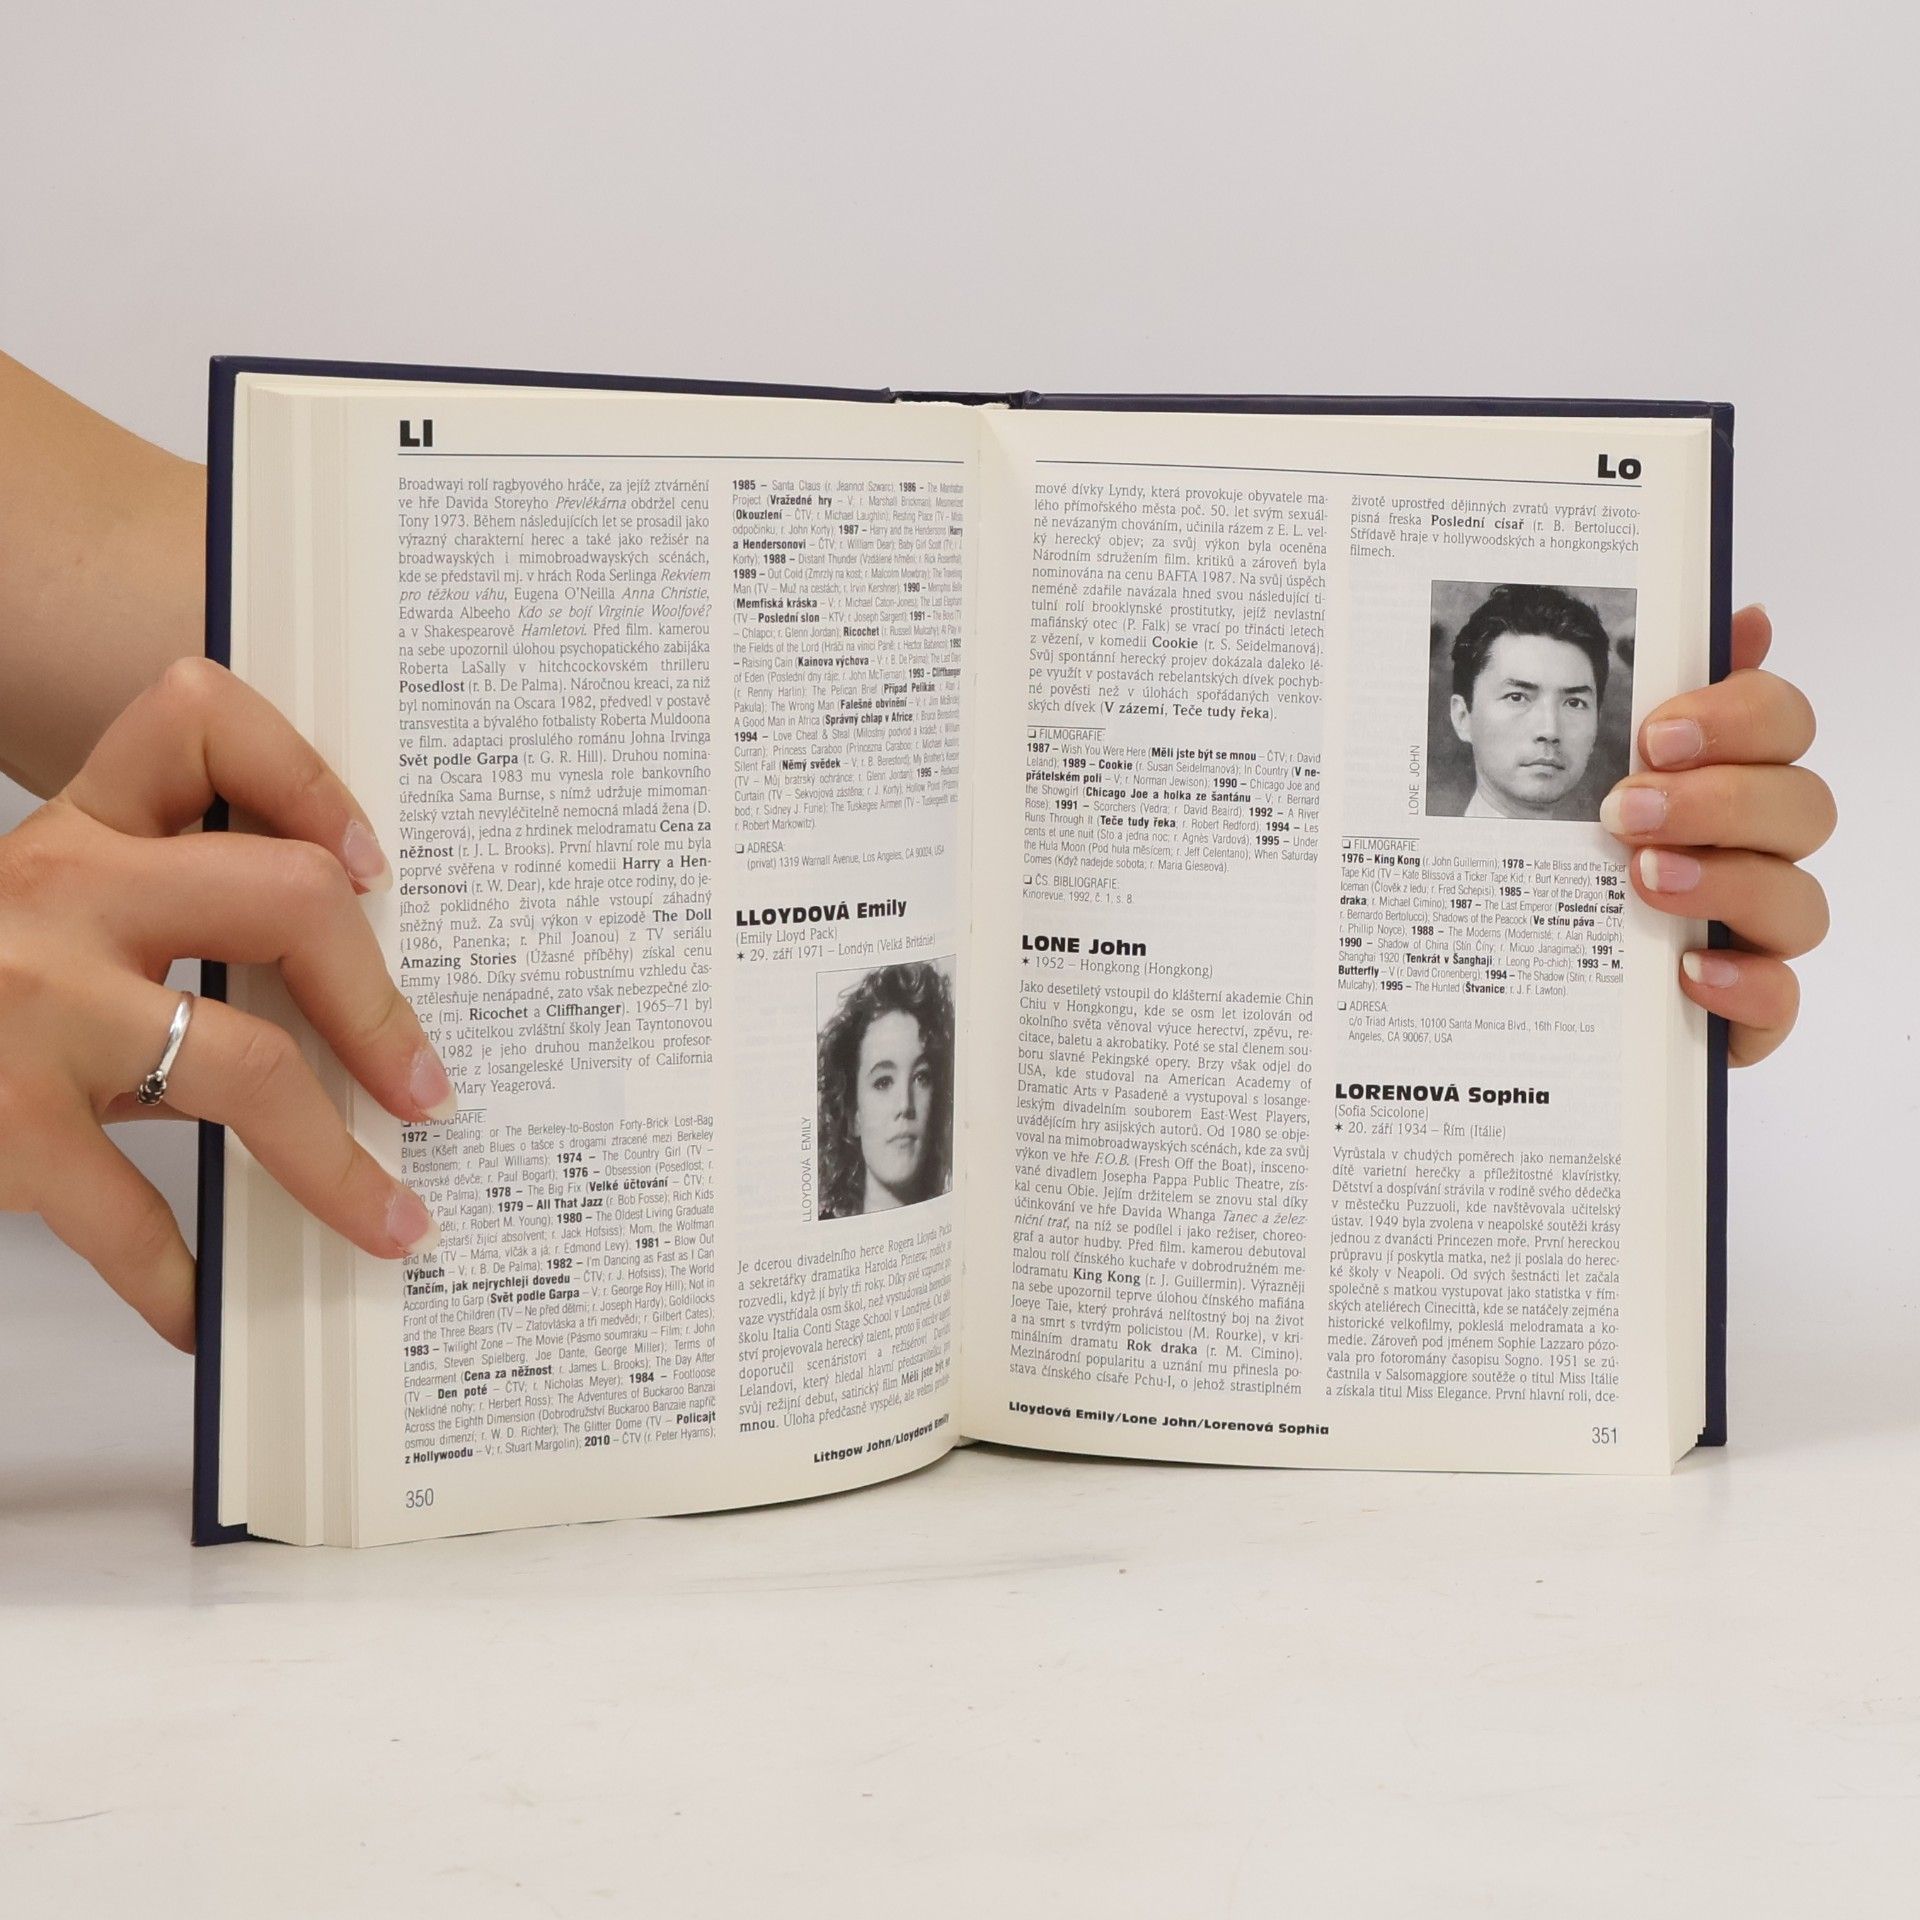 Ll
Broadwayi rolí ragbyového hráče, za jejíž ztvárnění
ve hře Davida Storeyho Převlékárna obdržel cenu
Tony 1973. Během následujících let se prosadil jako
výrazný charakterní herec a také jako režisér na
broadwayských i mimobroadwayských scénách,
kde se představil mj. v hrách Roda Serlinga Rekviem
pro těžkou váhu, Eugena O'Neilla Anna Christie,
Edwarda Albeeho Kdo se bojí Virginie Woolfové?
a v Shakespearově Hamletovi. Před film. kamerou
na sebe upozornil úlohou psychopatického zabijáka
Roberta LaSally v hitchcockovském thrilleru
Posedlost (r. B. De Palma). Náročnou kreaci, za niž
byl nominován na Oscara 1982, předvedl v postavě
transvestita a bývalého fotbalisty Roberta Muldoona
ve film. adaptaci proslulého románu Johna Irvinga
Svět podle Garpa (r. G. R. Hill). Druhou nomina-
ci na Oscara 1983 mu vynesla role bankovního
úředníka Sama Burnse, s nímž udržuje mimoman-
želský vztah nevyléčitelně nemocná mladá žena (D.
Wingerová), jedna z hrdinek melodramatu Cena za
něžnost (r. J. L. Brooks). První hlavní role mu byla
poprvé svěřena v rodinné komedii Harry a Hen-
dersonovi (r. W. Dear), kde hraje otce rodiny, do je-
jíhož poklidného života náhle vstoupí záhadný
sněžný muž. Za svůj výkon v epizodě The Doll
(1986, Panenka; r. Phil Joanou) z TV seriálu
Amazing Stories (Úžasné příběhy) získal cenu
Emmy 1986. Díky svému robustnímu vzhledu čas-
ztělesňuje nenápadné, zato však nebezpečné zlo-
(mj. Ricochet a Cliffhanger). 1965–71 byl
s učitelkou zvláštní školy Jean Tayntonovou
1982 je jeho druhou manželkou profesor-
z losangeleské University of California
Mary Yeagerová.
FILMOGRAFIE:
1972 – Dealing: or The Berkeley-to-Boston Forty-Brick Lost-Bag
Blues (Kšeft aneb Blues o tašce s drogami ztracené mezi Berkeley
a Bostonem; r. Paul Williams); 1974 – The Country Girl (TV –
Venkovské děvče; r. Paul Bogart); 1976 – Obsession (Posedlost; r.
De Palma); 1978 – The Big Fix (Velké účtování – ČTV; r.
Paul Kagan); 1979 – All That Jazz (r. Bob Fosse); Rich Kids
děti; r. Robert M. Young); 1980 – The Oldest Living Graduate
žijící absolvent; r. Jack Hofsiss); Mom, the Wolfman
and Me (TV – Máma, vlčák a já; r. Edmond Levy); 1981 – Blow Out
(Výbuch – V; r. B. De Palma); 1982 – I'm Dancing as Fast as I Can
(Tančím, jak nejrychleji dovedu – ČTV; r. J. Hofsiss); The World
According to Garp (Svět podle Garpa – V; r. George Roy Hill); Not in
Front of the Children (TV – Ne před dětmi; r. Joseph Hardy); Goldilocks
and the Three Bears (TV – Zlatovláska a tři medvědi; r. Gilbert Cates);
1983 – Twilight Zone – The Movie (Pásmo soumraku – Film; r. John
Landis, Steven Spielberg, Joe Dante, George Miller); Terms of
Endearment (Cena za něžnost; r. James L. Brooks); The Day After
(TV – Den poté – ČTV; r. Nicholas Meyer); 1984 – Footloose
(Neklidné nohy; r. Herbert Ross); The Adventures of Buckaroo Banzai
Across the Eighth Dimension (Dobrodružství Buckaroo Banzaie napříč
osmou dimenzí; r. W. D. Richter); The Glitter Dome (TV – Policajt
z Hollywoodu – V; r. Stuart Margolin); 2010 – ČTV (r. Peter Hyams);
350
1985 – Santa Claus (r. Jeannot Szwarc); 1986 – The Manhattan
Project (Vražedné hry – V; r. Marshall Brickman); Mesmerized
(Okouzlení – ČTV; r. Michael Laughlin); Resting Place (TV – Místo
odpočinku; r. John Korty); 1987 – Harry and the Hendersons (Harry
a Hendersonovi – ČTV; r. William Dear); Baby Girl Scott (TV; r. J.
Korty); 1988 – Distant Thunder (Vzdálené hřmění; r. Rick Rosenthal);
1989 – Out Cold (Zmrzlý na kost; r. Malcolm Mowbray); The Traveling
Man (TV – Muž na cestách; r. Irvin Kershner); 1990 – Memphis Belle
(Memfiská kráska – V; r. Michael Caton-Jones); The Last Elephant
(TV – Poslední slon – KTV; r. Joseph Sargent); 1991 – The Boys (TV
– Chlapci; r. Glenn Jordan); Ricochet (r. Russell Mulcahy); At Play in
the Fields of the Lord (Hráči na vinici Páně; r. Hector Babenco); 1992
– Raising Cain (Kainova výchova – V; r. B. De Palma); The Last Days
of Eden (Poslední dny ráje; r. John McTiernan); 1993 – Cliffhanger
(r. Renny Harlin); The Pelican Brief (Případ Pelikán; r. Alan J.
Pakula); The Wrong Man (Falešné obvinění – V; r. Jim McBride);
A Good Man in Africa (Správný chlap v Africe; r. Bruce Beresford);
1994 – Love Cheat & Steal (Milostný podvod a krádež; r. William
Curran); Princess Caraboo (Princezna Caraboo; r. Michael Austin);
Silent Fall (Němý svědek – V; r. B. Beresford); My Brother's Keeper
(TV – Můj bratrský ochránce; r. Glenn Jordan); 1995 – Redwood
Curtain (TV – Sekvojová zástěna; r. J. Korty); Hollow Point (Prázdný
bod; r. Sidney J. Furie); The Tuskegee Airmen (TV – Tuskegeeští letci;
r. Robert Markowitz).
ADRESA:
(privat) 1319 Warnall Avenue, Los Angeles, CA 90024, USA
LLOYDOVÁ Emily
(Emily Lloyd Pack)
✶ 29. září 1971 – Londýn (Velká Británie)
LLOYDOVÁ EMILY
Je dcerou divadelního herce Rogera Lloyda Packa
a sekretářky dramatika Harolda Pintera; rodiče se
rozvedli, když jí byly tři roky. Díky své vzpurné po-
vaze vystřídala osm škol, než vystudovala hereckou
školu Italia Conti Stage School v Londýně. Od dět-
ství projevovala herecký talent, proto ji
doporučil scenáristovi a režisérovi Davidu
Lelandovi, který hledal hlavní představitelku pro
svůj režijní debut, satirický film Měli jste být se
mnou. Úloha předčasně vyspělé, ale velmi
Lithgow John/Lloydová Emily
Lo
mové dívky Lyndy, která provokuje obyvatele ma-
lého přímořského města poč. 50. let svým sexuál-
ně nevázaným chováním, učinila rázem z E. L. vel-
ký herecký objev; za svůj výkon byla oceněna
Národním sdružením film. kritiků a zároveň byla
nominována na cenu BAFTA 1987. Na svůj úspěch
neméně zdařile navázala hned svou následující ti-
tulní rolí brooklynské prostitutky, jejíž nevlastní
mafiánský otec (P. Falk) se vrací po třinácti letech
z vězení, v komedii Cookie (r. S. Seidelmanová).
Svůj spontánní herecký projev dokázala daleko lé-
pe využít v postavách rebelantských dívek pochyb-
né pověsti než v úlohách spořádaných venkov-
ských dívek (V zázemí, Teče tudy řeka).
FILMOGRAFIE:
1987 – Wish You Were Here (Měli jste být se mnou – ČTV; r. David
Leland); 1989 – Cookie (r. Susan Seidelmanová); In Country (V ne-
přátelském poli – V; r. Norman Jewison); 1990 – Chicago Joe and
the Showgirl (Chicago Joe a holka ze šantánu – V; r. Bernard
Rose); 1991 – Scorchers (Vedra; r. David Beaird); 1992 – A River
Runs Through It (Teče tudy řeka; r. Robert Redford); 1994 – Les
cents et une nuit (Sto a jedna noc; r. Agnès Vardová); 1995 – Under
the Hula Moon (Pod hula měsícem; r. Jeff Celentano); When Saturday
Comes (Když nadejde sobota; r. Maria Gieseová).
ČS. BIBLIOGRAFIE:
Kinorevue, 1992, č. 1, s. 8.
LONE John
✶ 1952 – Hongkong (Hongkong)
Jako desetiletý vstoupil do klášterní akademie Chin
Chiu v Hongkongu, kde se osm let izolován od
okolního světa věnoval výuce herectví, zpěvu, re-
citace, baletu a akrobatiky. Poté se stal členem sou-
boru slavné Pekingské opery. Brzy však odjel do
USA, kde studoval na American Academy of
Dramatic Arts v Pasadeně a vystupoval s losange-
leským divadelním souborem East-West Players,
uvádějícím hry asijských autorů. Od 1980 se obje-
voval na mimobroadwayských scénách, kde za svůj
výkon ve hře F.O.B. (Fresh Off the Boat), insceno-
vané divadlem Josepha Pappa Public Theatre, zís-
kal cenu Obie. Jejím držitelem se znovu stal díky
účinkování ve hře Davida Whanga Tanec a želez-
niční trať, na níž se podílel i jako režiser, choreo-
graf a autor hudby. Před film. kamerou debutoval
malou rolí čínského kuchaře v dobrodružném me-
lodramatu King Kong (r. J. Guillermin). Výrazněji
na sebe upozornil teprve úlohou čínského mafiána
Joeye Taie, který prohrává nelítostný boj na život
a na smrt s tvrdým policistou (M. Rourke), v kri-
minálním dramatu Rok draka (r. M. Cimino).
Mezinárodní popularitu a uznání mu přinesla po-
stava čínského císaře Pchu-I, o jehož strastiplném
životě uprostřed dějinných zvratů vypráví životo-
pisná freska Poslední císař (r. B. Bertolucci).
Střídavě hraje v hollywoodských a hongkongských
filmech.
LONE JOHN
FILMOGRAFIE:
1976 – King Kong (r. John Guillermin); 1978 – Kate Bliss and the Ticker
Tape Kid (TV – Kate Blissová a Ticker Tape Kid; r. Burt Kennedy); 1983 –
Iceman (Člověk z ledu; r. Fred Schepisi); 1985 – Year of the Dragon (Rok
draka; r. Michael Cimino); 1987 – The Last Emperor (Poslední císař;
r. Bernardo Bertolucci); Shadows of the Peacock (Ve stínu páva – ČTV;
r. Phillip Noyce); 1988 – The Moderns (Modernisté; r. Alan Rudolph);
1990 – Shadow of China (Stín Číny; r. Micuo Janagimači); 1991 –
Shanghai 1920 (Tenkrát v Šanghaji; r. Leong Po-chich); 1993 – M.
Butterfly – V (r. David Cronenberg); 1994 – The Shadow (Stín; r. Russell
Mulcahy); 1995 – The Hunted (Štvanice; r. J. F. Lawton).
ADRESA:
c/o Triad Artists, 10100 Santa Monica Blvd., 16th Floor, Los
Angeles, CA 90067, USA
LORENOVÁ Sophia
(Sofia Scicolone)
✶ 20. září 1934 – Řím (Itálie)
Vyrůstala v chudých poměrech jako nemanželské
dítě varietní herečky a příležitostné klavíristky.
Dětství a dospívání strávila v rodině svého dědečka
v městečku Puzzuoli, kde navštěvovala učitelský
ústav. 1949 byla zvolena v neapolské soutěži krásy
jednou z dvanácti Princezen moře. První hereckou
průpravu jí poskytla matka, než ji poslala do herec-
ké školy v Neapoli. Od svých šestnácti let začala
společně s matkou vystupovat jako statistka v řím-
ských ateliérech Cinecittà, kde se natáčely zejména
historické velkofilmy, pokleslá melodramata a ko-
medie. Zároveň pod jménem Sophie Lazzaro pózo-
vala pro fotoromány časopisu Sogno. 1951 se zú-
častnila v Salsomaggiore soutěže o titul Miss Itálie
a získala titul Miss Elegance. První hlavní roli, dce-
Lloydová Emily/Lone John/Lorenová Sophia
351